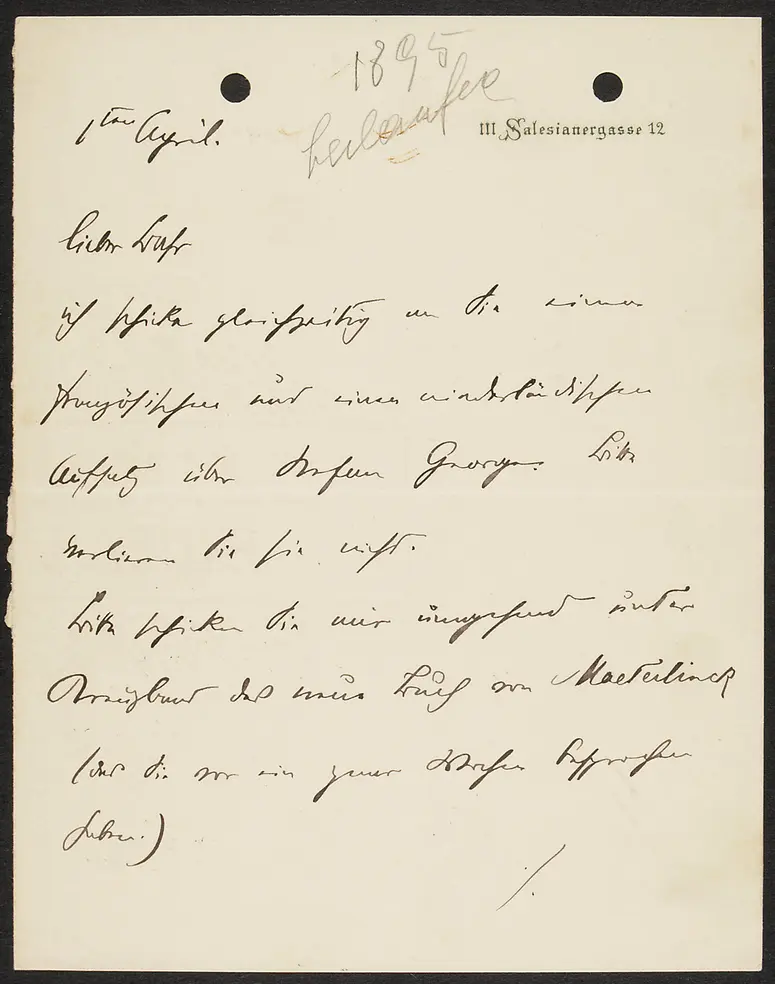 1895
beilaufig
1ten April.
III. Salesianergasse 12
lieber Bahr
ich schicke gleichzeitig an Sie einen
französischen und einen niederländischen
Aufsatz über Stefan George. Bitte
verlieren Sie sie nicht.
Bitte schicken Sie mir umgehend unter
Kreuzband das neue Buch von Maeterlinck
(das Sie vor ein paar Wochen besprochen
haben.)
/.